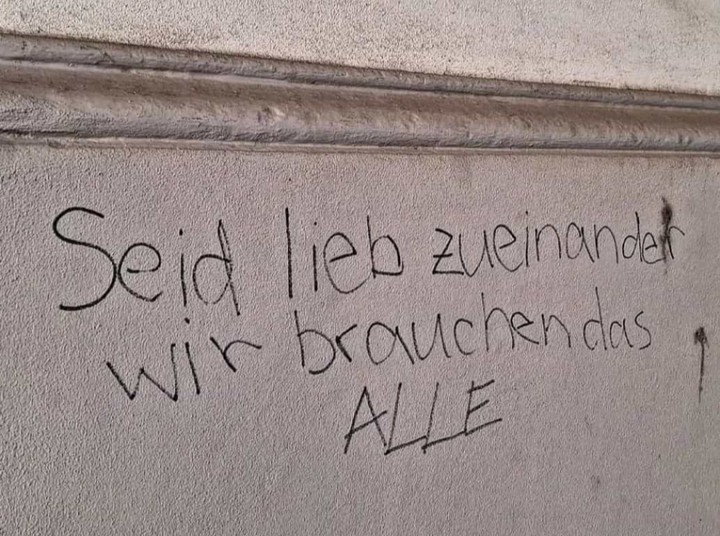 Seid lieb zueinander
wir brauchen das
ALLE